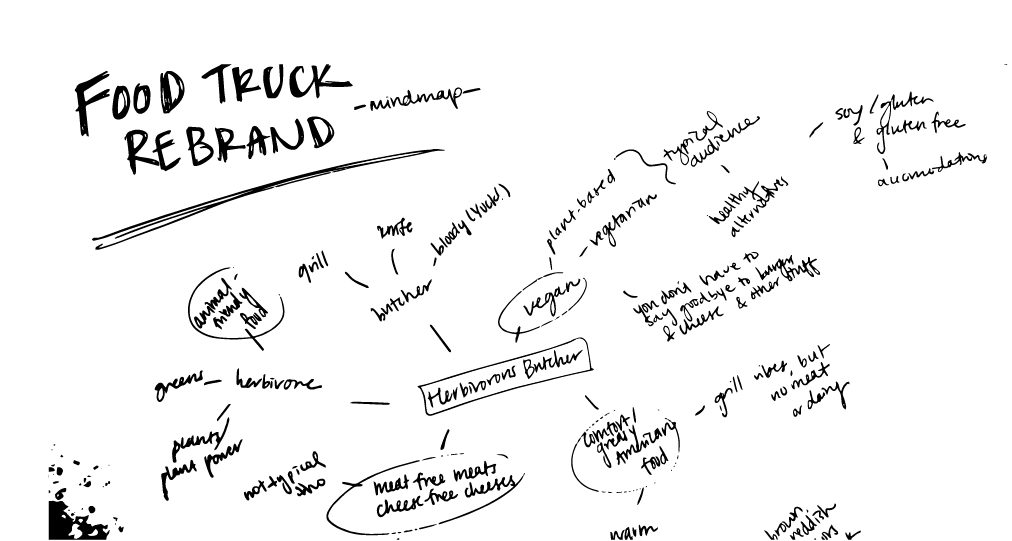 FOOD TRUCK
REBRAND
-mindmap-
soy/gluten
& gluten free
accomodations
typical
audience
healthy
alternatives
plant-based
vegetarian
vegan
you don't have to
say goodbye to burger
& cheese & other stuff
knife
bloody (Yuck!)
grill
butcher
animal-
friendly
food
greens
herbivore
plants/
plant power
Herbivorous Butcher
grill vibes, but
no meat
or dairy
comfort/
greasy
American
food
not typical
tho
meat free meats
cheese free cheeses
warm
brown
reddish